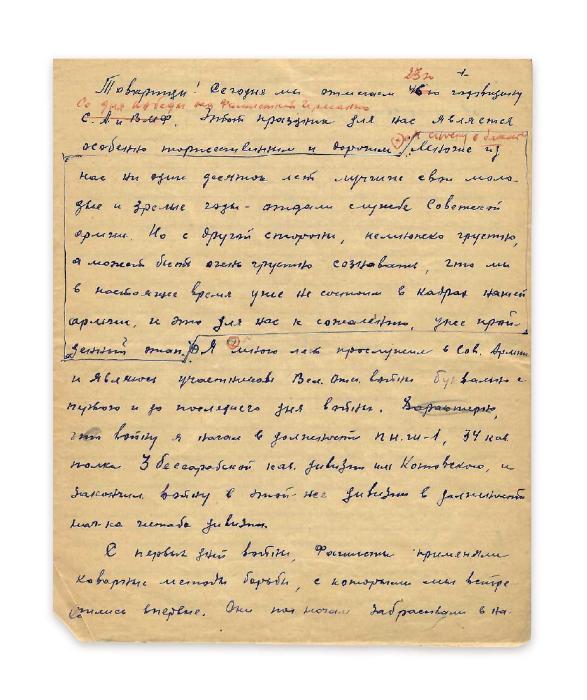 23ю
Товарищи! Сегодня мы отмечаем 46ю годовщину
Со дня победы над фашистской Германией
С.А и ВМФ. Этот праздник для нас является
особенно торжественным и дорогим. Многие из
нас ни один десяток лет лучшие свои моло-
дые и зрелые годы - отдали службе Советской
армии. Но с другой стороны, немножко грустно,
а может быть очень грустно сознавать, что мы
в настоящее время уже не состоим в кадрах нашей
армии, и это для нас к сожалению, уже прой-
денный этап. Я много лет прослужил в Сов. Армии
и являюсь участником Вел. Отч. войны буквально с
первого и до последнего дня войны. Характерно,
что войну я начал в должности ПНШ-1, 34 кав.
полка 3 бессарабской кав. дивизии им Котовского, и
закончил войну в этой-же дивизии в должности
нач-ка штаба дивизии.
С первых дней войны, фашисты применяли
коварные методы борьбы, с которыми мы встре
тились впервые. Они по ночам забрасывали в на-